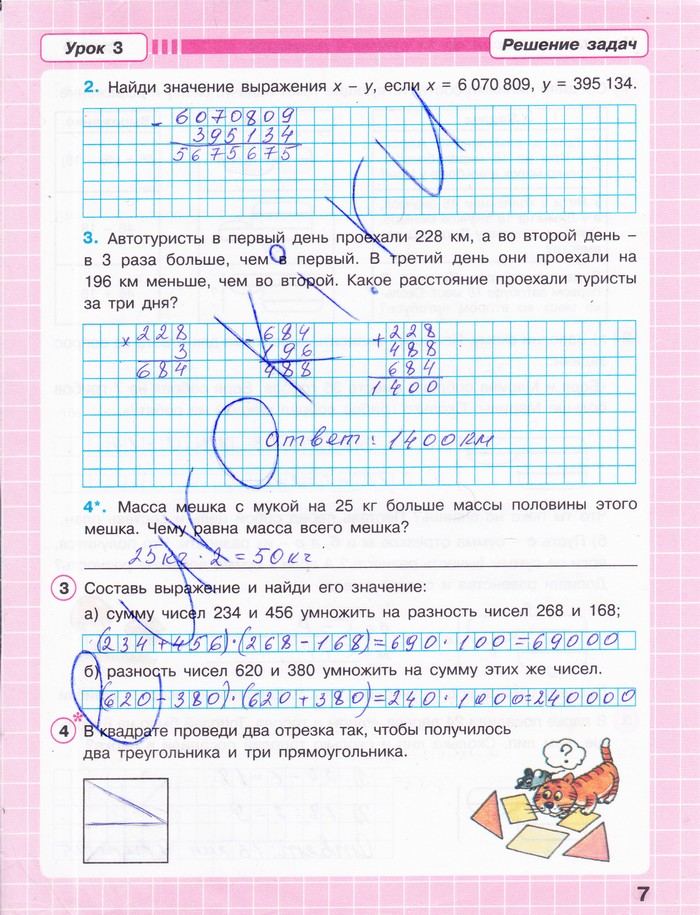 Урок 3
Решение задач
2. Найди значение выражения x – y, если x = 6 070 809, y = 395 134.
– 6070809
395134
5675675
3. Автотуристы в первый день проехали 228 км, а во второй день –
в 3 раза больше, чем в первый. В третий день они проехали на
196 км меньше, чем во второй. Какое расстояние проехали туристы
за три дня?
× 228 – 684 + 228
3 196 488
684 488 684
1400
Ответ: 1400км
4*. Масса мешка с мукой на 25 кг больше массы половины этого
мешка. Чему равна масса всего мешка?
25кг · 2 = 50кг
3 Составь выражение и найди его значение:
а) сумму чисел 234 и 456 умножить на разность чисел 268 и 168;
(234+456)·(268–168)=690·100=69000
б) разность чисел 620 и 380 умножить на сумму этих же чисел.
(620–380)·(620+380)=240·1000=240000
4* В квадрате проведи два отрезка так, чтобы получилось
два треугольника и три прямоугольника.
?
7